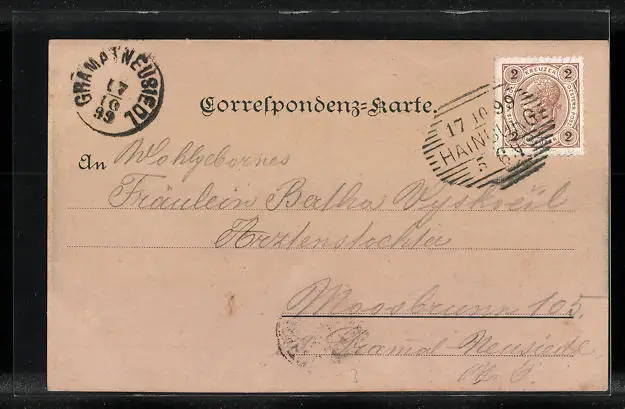 GRAMATNEUSIEDL
17
10
99
Correspondenz-Karte.
2 KREUZER 2
2 2
17 10 99
HAINBURG
An Wohlgebornes
Fräulein Bertha Vyskočil
Arztenstochter
Moosbrunn 105.
Gramat Neusiedl